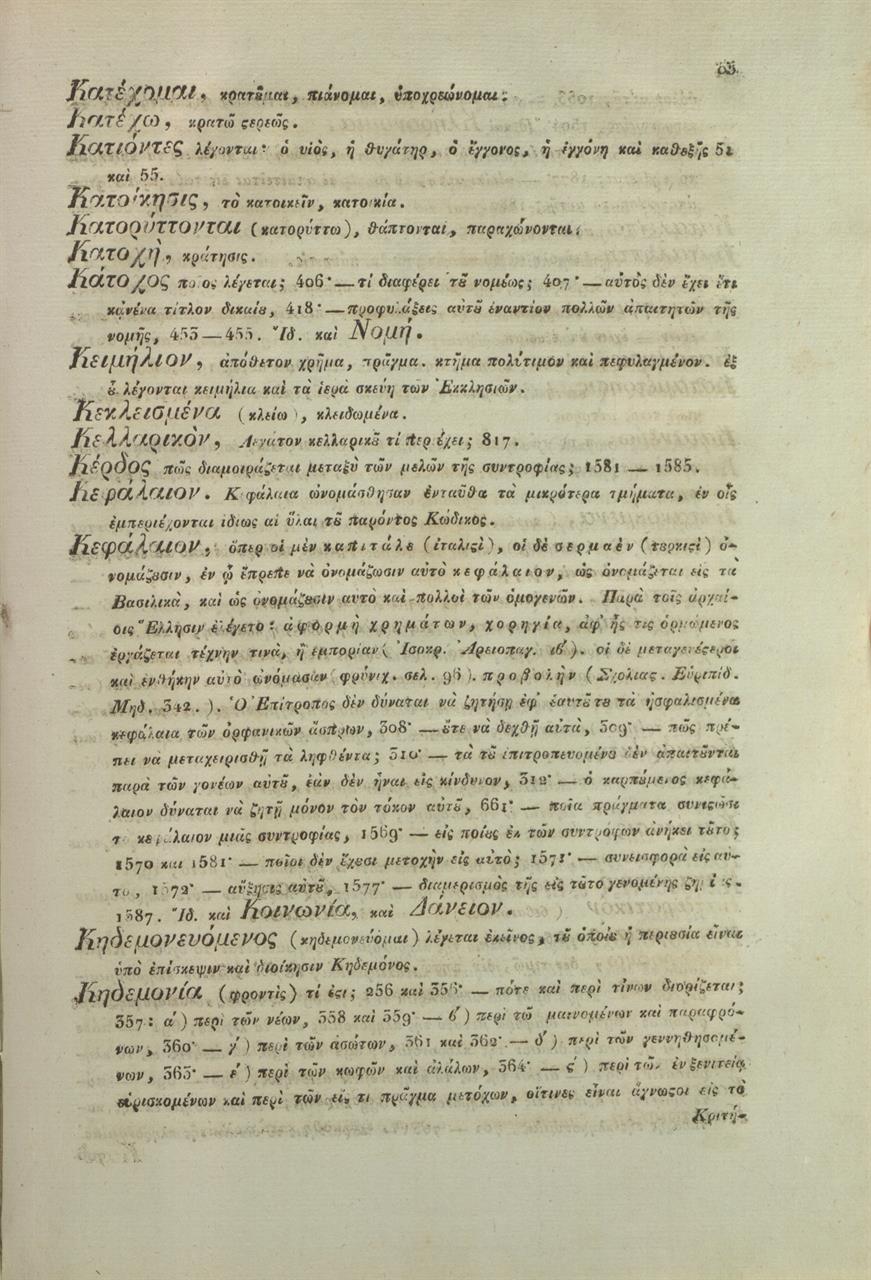 Κατέχομαι, κρατȣ͂μαι, πιάνομαι, ὑποχρεώνομαι.
Κατέχω, κρατῶ ςερεῶς.
Κατιόντες λέγονται· ὁ υἱὸς, ἡ θυγάτηρ, ὁ ἔγγονος, ἡ ἐγγόνη καὶ καθεξῆς 51
καὶ 55.
Κατοίκησις, τὸ κατοικεῖν, κατοικία.
Κατορύττονται (κατορύττω), θάπτονται, παραχώνονται.
Κατοχὴ, κράτησις.
Κάτοχος ποῖος λέγεται; 406· — τί διαφέρει τȣ͂ νομέως; 407· — αὐτὸς δὲν ἔχει ἔτι
κᾀνένα τίτλον δικαίȣ, 418· — προφυλάξεις αὐτȣ͂ ἐναντίον πολλῶν ἀπαιτητῶν τῆς
νομῆς, 453 — 455. Ἴδ. καὶ Νομή.
Κειμήλιον, ἀπόθετον χρῆμα, πρᾶγμα. κτῆμα πολύτιμον καὶ πεφυλαγμένον. ἐξ
ȣ͗͂ λέγονται κειμήλια καὶ τὰ ἱερὰ σκεύη τῶν Ἐκκλησιῶν.
Κεκλεισμένα (κλείω), κλειδωμένα.
Κελλαρικὸν, Λεγάτον κελλαρικȣ͂ τί περιέχει; 817.
Κέρδος πῶς διαμοιράζεται μεταξὺ τῶν μελῶν τῆς συντροφίας; 1581 — 1585.
Κεφάλαιον. Κεφάλαια ὠνομάσθησαν ἐνταῦθα τὰ μικρότερα τμήματα, ἐν οἷς
ἐμπεριέχονται ἰδίως αἱ ὕλαι τȣ͂ παρόντος Κώδικος.
Κεφάλαιον, ὅπερ οἱ μὲν καπιτάλε (ἰταλιςὶ), οἱ δὲ σερμαὲν (τȣρκιςὶ) ὀ-
νομάζȣσιν, ἐν ᾧ ἔπρεπε νὰ ὀνομάζωσιν αὐτὸ κεφάλαιον, ὡς ὀνομάζεται εἰς τὰ
Βασιλικὰ, καὶ ὡς ὀνομάζȣσιν αὐτὸ καὶ πολλοὶ τῶν ὁμογενῶν. Παρὰ τοῖς ἀρχαί-
οις Ἕλλησιν ἐλέγετο· ἀφορμὴ χρημάτων, χορηγία, ἀφ' ἧς τις ὁρμώμενος
ἐργάζεται τέχνην τινὰ, ἢ ἐμπορίαν (Ἰσοκρ. Ἀρειοπαγ. ιβ'). οἱ δὲ μεταγενέςεροι
καὶ ἐνθήκην αὐτὸ ὠνόμασαν (φρύνιχ. σελ. 96). προβολὴν (Σχολιας. Εὐριπίδ.
Μηδ. 342.). Ὁ Ἐπίτροπος δὲν δύναται νὰ ζητήσῃ ἐφ' ἑαυτȣ͂ τὰ ἠσφαλισμένα
κεφάλαια τῶν ὀρφανικῶν ἄσπρων, 308· — ȣ̓́τε νὰ δεχθῇ αὐτὰ, 309· — πῶς πρέ-
πει νὰ μεταχειρισθῇ τὰ ληφθέντα; 310· — τὰ τȣ͂ ἐπιτροπευομένȣ δὲν ἀπαιτȣ͂νται
παρὰ τῶν γονέων αὐτȣ͂, ἐὰν δὲν ἦναι εἰς κίνδυνον, 312· — ὁ καρπȣ́μενος κεφά-
λαιον δύναται νὰ ζητῇ μόνον τὸν τόκον αὐτȣ͂, 661· — ποῖα πράγματα συνιςῶσι
τὸ κεφάλαιον μιᾶς συντροφίας, 1569· — εἰς ποίȣς ἐκ τῶν συντρόφων ἀνήκει τȣ͂το;
1570 καὶ 1581· — ποῖοι δὲν ἔχȣσι μετοχὴν εἰς αὐτό; 1571· — συνεισφορὰ εἰς αὐ-
τὸ, 1572· — αὔξησις αὐτȣ͂, 1577· — διαμερισμὸς τῆς εἰς τȣ͂το γενομένης ζημίας.
1587. Ἴδ. καὶ Κοινωνία, καὶ Δάνειον.
Κηδεμονευόμενος (κηδεμονεύομαι) λέγεται ἐκεῖνος, τȣ͂ ὁποίȣ ἡ περιȣσία εἶναι
ὑπὸ ἐπίσκεψιν καὶ διοίκησιν Κηδεμόνος.
Κηδεμονία (φροντὶς) τί ἐςι; 256 καὶ 356· — πότε καὶ περὶ τίνων διορίζεται;
357: α') περὶ τῶν νέων, 358 καὶ 359· — β') περὶ τῶν μαινομένων καὶ παραφρό-
νων, 360· — γ') περὶ τῶν ἀσώτων, 361 καὶ 362· — δ') περὶ τῶν γεννηθησομέ-
νων, 363· — ε') περὶ τῶν κωφῶν καὶ ἀλάλων, 364· — ς') περὶ τῶν ἐν ξενιτείᾳ
εὑρισκομένων καὶ περὶ τῶν εἴς τι πρᾶγμα μετόχων, οἵτινες εἶναι ἄγνωςοι εἰς τὸ
Κριτή-